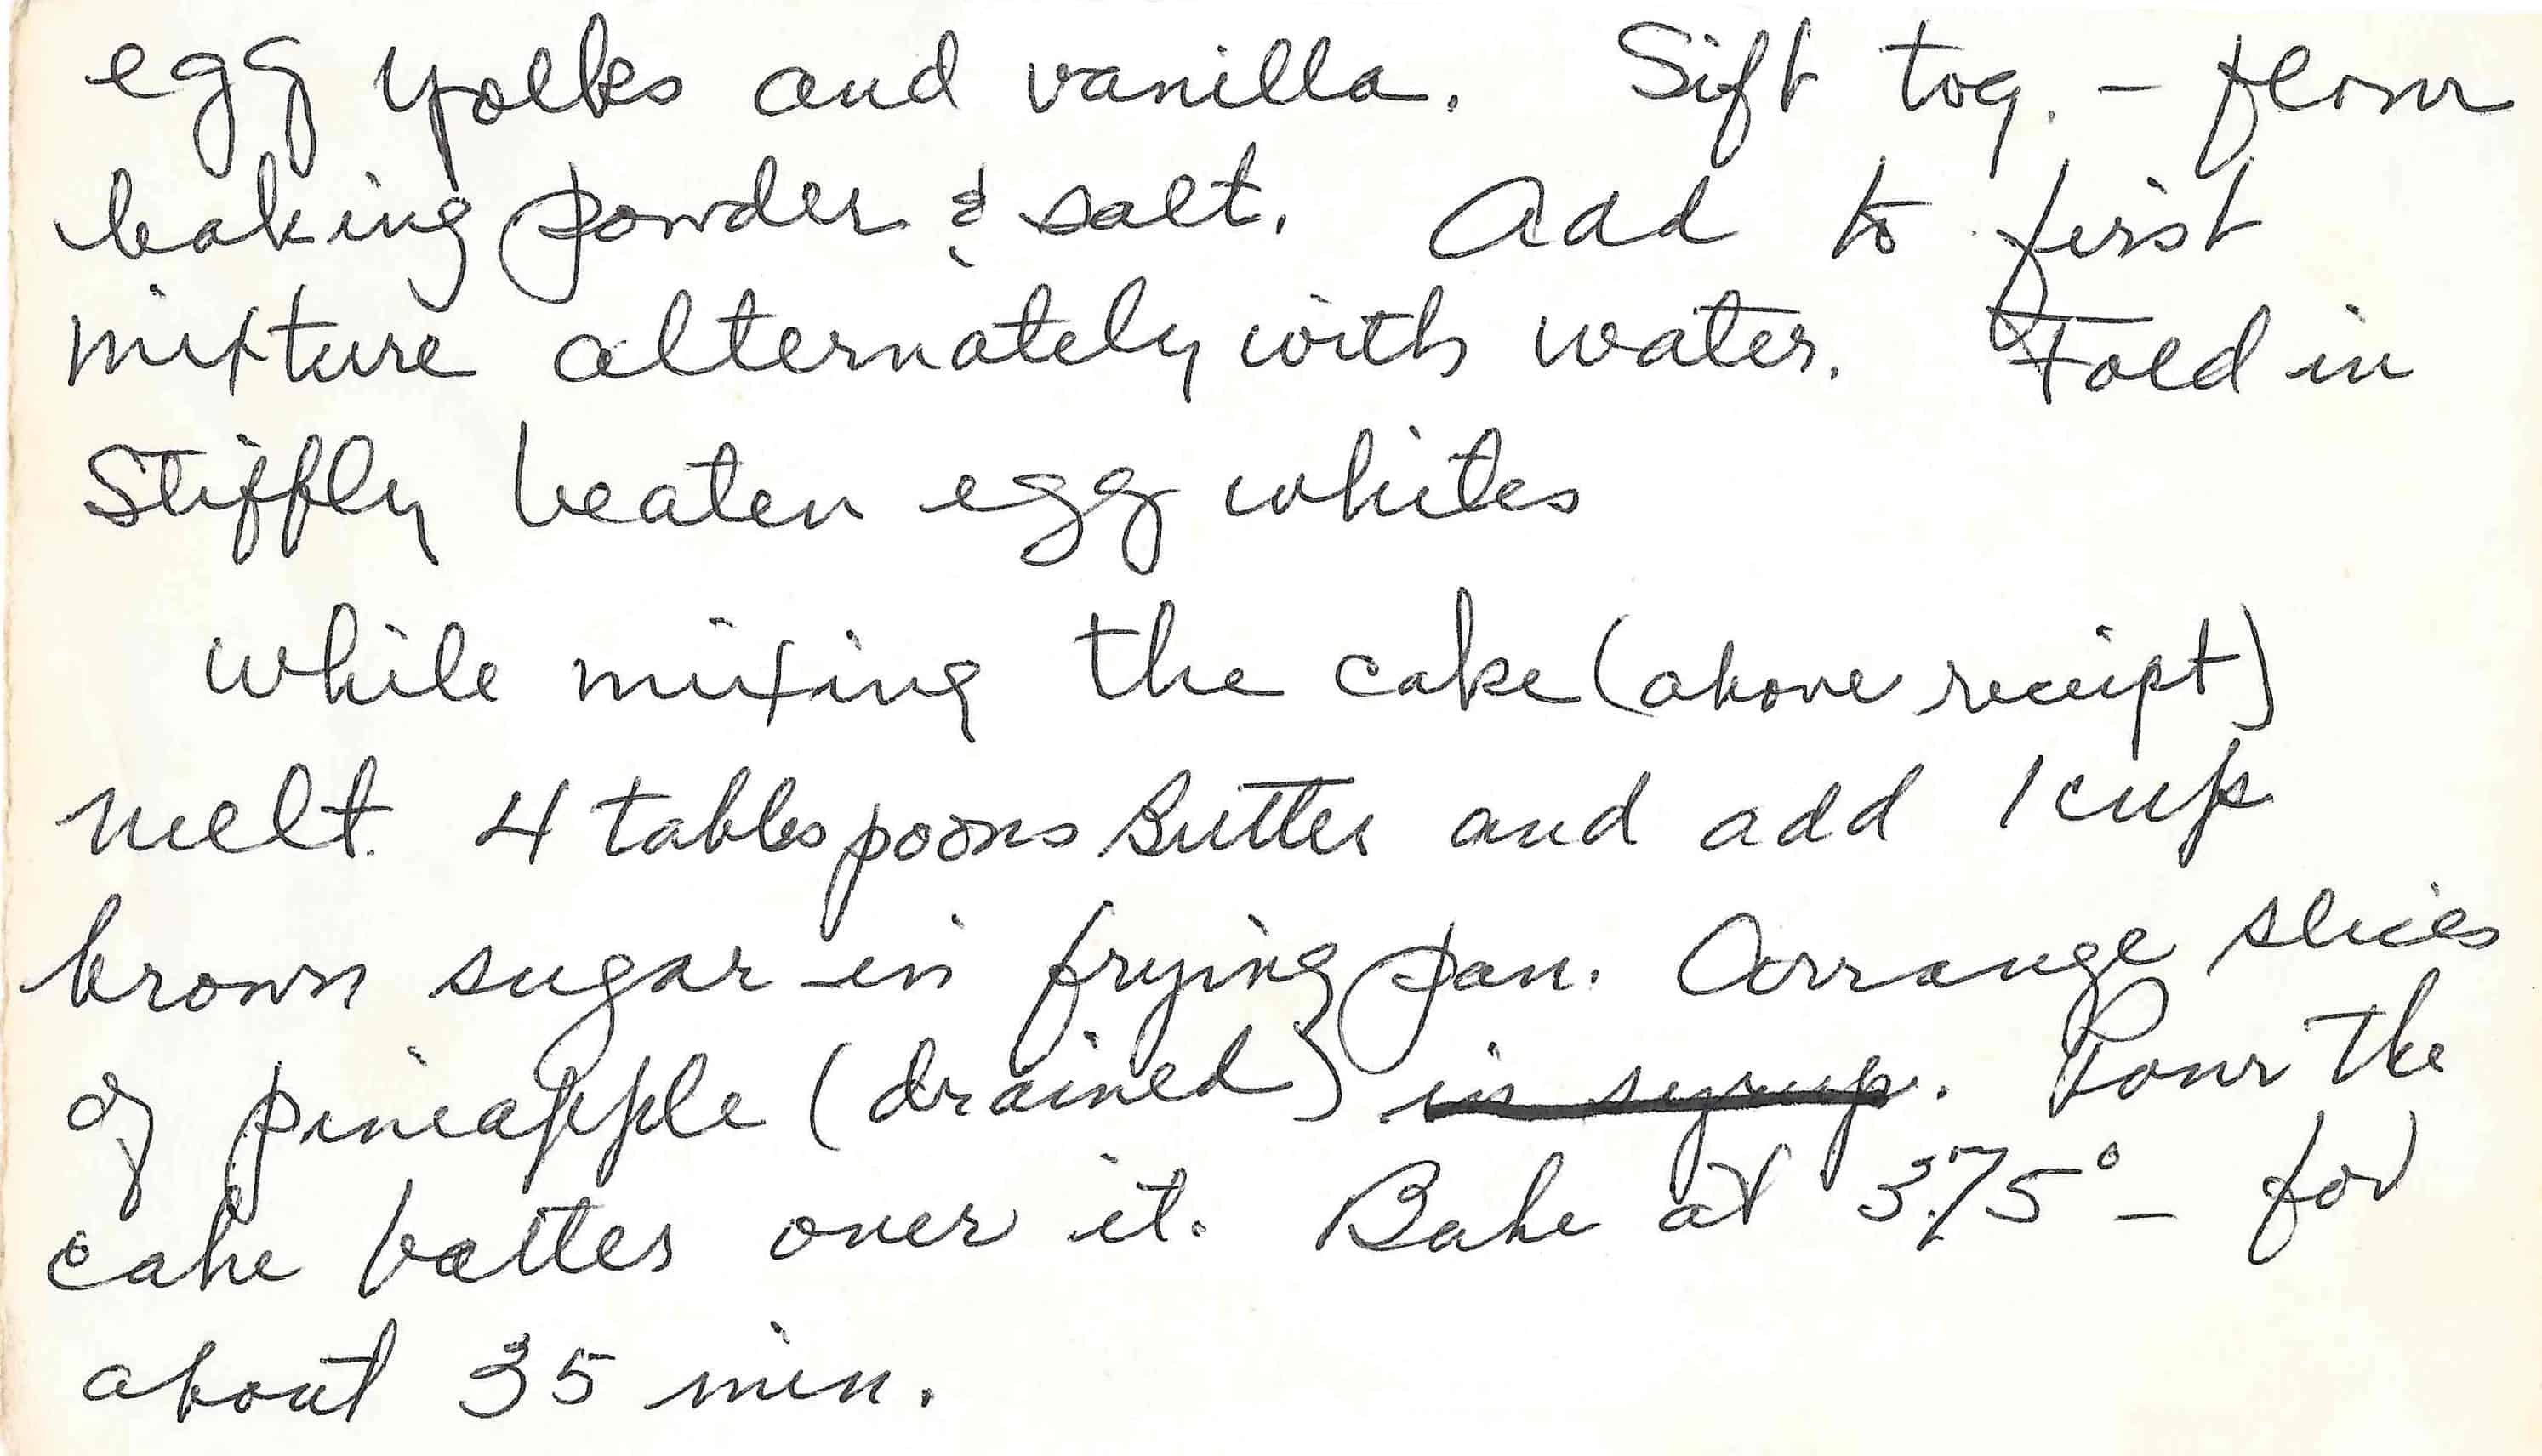 egg yolks and vanilla. Sift tog. - flour
baking powder & salt. Add to first
mixture alternately with water. Fold in
Stiffly beaten egg whites
while mixing the cake (above receipt)
melt 4 tablespoons Butter and add 1 cup
brown sugar in frying pan. Arrange slices
of pineapple (drained) in syrup. Pour the
cake batter over it. Bake at 375° - for
about 35 min.